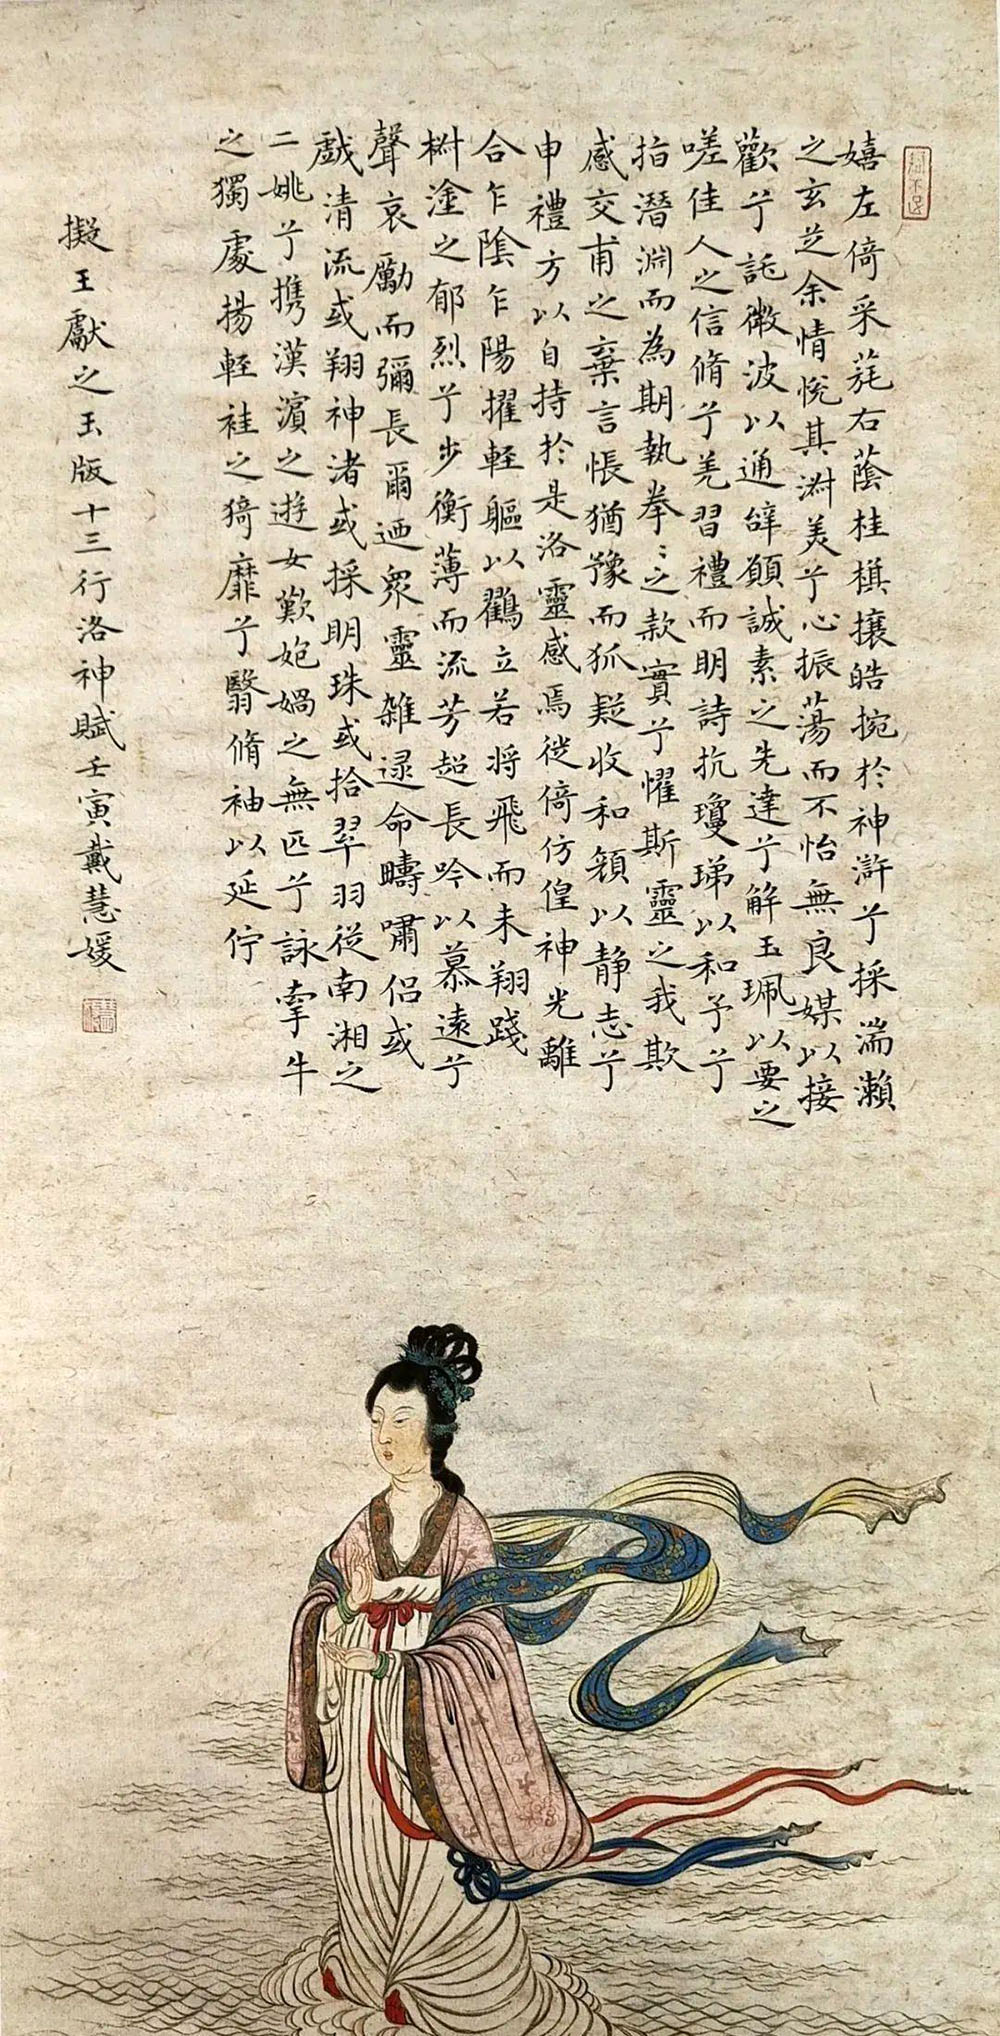 嬉左倚采旄右蔭桂旗攘皓捥於神滸兮採湍瀨
之玄芝余情悅其淑美兮心振蕩而不怡無良媒以接
歡兮託微波以通辭願誠素之先達兮解玉珮以要之
嗟佳人之信脩兮羌習禮而明詩抗瓊珶以和予兮
指潛淵而為期執拳〻之款實兮懼斯靈之我欺
感交甫之棄言悵猶豫而狐疑收和顏以静志兮
申禮方以自持於是洛靈感焉徙倚仿偟神光離
合乍陰乍陽擢輕軀以鶴立若將飛而未翔踐
椒塗之郁烈兮步衡薄而流芳超長吟以慕遠兮
聲哀厲而彌長爾迺眾靈雜遝命疇嘯侶或
戲清流或翔神渚或採明珠或拾翠羽從南湘之
二姚兮攜漢濱之遊女歎匏媧之無匹兮詠牽牛
之獨處揚輕袿之猗靡兮翳脩袖以延佇
擬王獻之玉版十三行洛神賦壬寅戴慧媛